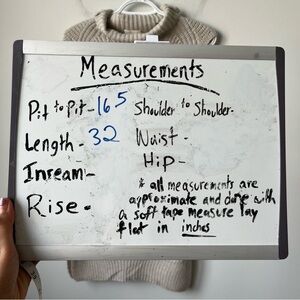 Measurements
Pit to Pit - 16.5 Shoulder to Shoulder -
Length - 32 Waist -
Inream - Hip -
Rise - * all measurements are
approximate and done with
a soft tape measure lay
flat in inches